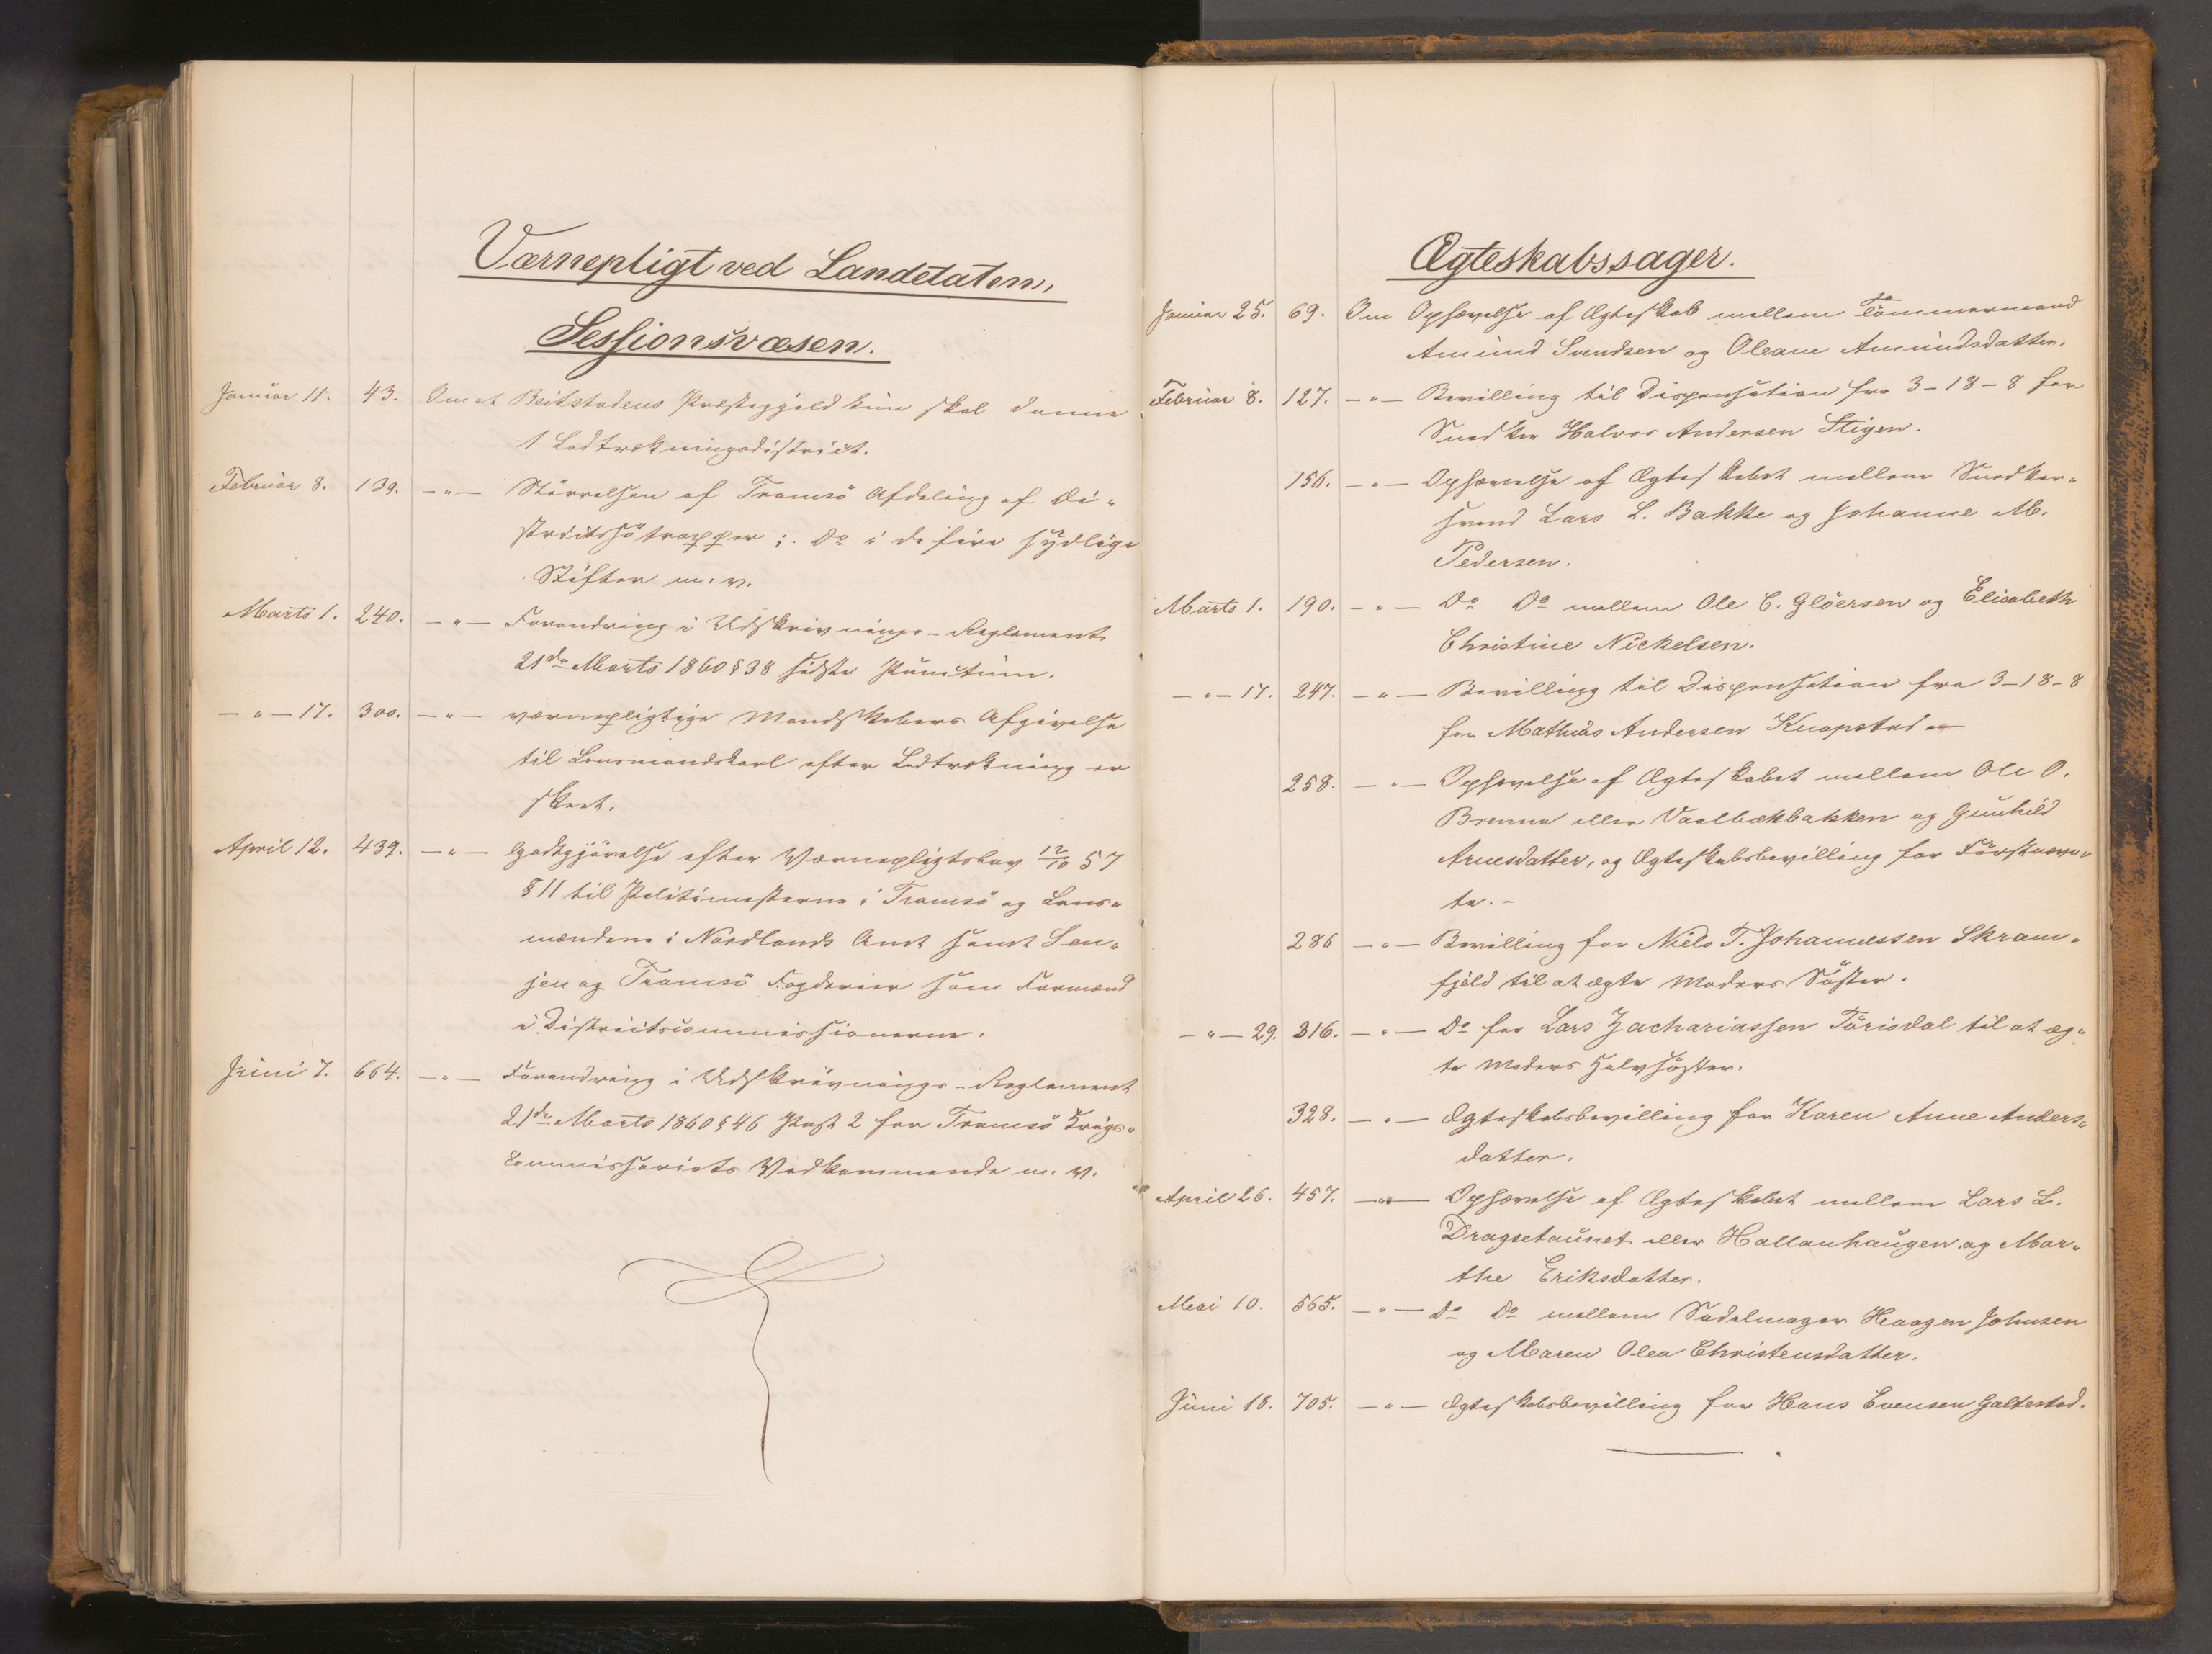 Værnepligt ved Landetaten,
Sessionsvæsen.
Januar 11. 43. Om at Beitstadens Præstegjeld kun skal danne
1 Lodtrækningsdistrict.
Februar 8. 139. —"— Størrelsen af Tromsö Afdeling af Di-
strictssötropper; Do i de fire sydlige
Stifter m. v.
Marts 1. 240. —"— Forandring i Udskrivnings-Reglement
21de Marts 1860 § 38 sidste Punctum.
—"— 17. 300. —"— værnepligtige Mandskabers Afgivelse
til Lensmandskarl efter Lodtrækning er
skeet.
April 12. 439. —"— Godtgjörelse efter Værnepligtslov 12/10 57
§ 11 til Politimesterne i Tromsö og Lens-
mændene i Nordlands Amt samt Sen-
jen og Tromsö Fogderier som Formænd
i Districtscommissionerne.
Juni 7. 664. —"— Forandring i Udskrivnings-Reglement
21de Marts 1860 § 46 Post 2 for Tromsö Krigs-
commissariats Vedkommende m. v.
Ægteskabssager.
Januar 25. 69. Om Ophævelse af Ægteskab mellem Tömmermand
Amund Svendsen og Oleane Amundsdatter.
Februar 8. 127. —"— Bevilling til Dispensation fra 3-18-8 for
Snedker Halvor Andersen Stigen.
156. —"— Ophævelse af Ægteskabet mellem Snedker-
svend Lars L. Bakke og Johanne M.
Pedersen.
Marts 1. 190. —"— Do Do mellem Ole C. Glöersen og Elisabeth
Christine Nickelsen.
—"— 17. 247. —"— Bevilling til Dispensation fra 3-18-8
for Mathias Andersen Knapstad
258. —"— Ophævelse af Ægteskabet mellem Ole O.
Brenna eller Vaalbækbakken og Gunhild
Arnesdatter, og Ægteskabsbevilling for Förstnævn-
te.-
286 —"— Bevilling for Niels T. Johannessen Skram-
fjeld til at ægte Moders Söster.
—"— 29. 316. —"— Do for Lars Zachariassen Törisdal til at æg-
te Moders Halvsöster.
328. —"— Ægteskabsbevilling for Karen Anne Anders-
datter.
April 26. 457. —"— Ophævelse af Ægteskabet mellem Lars L.
Dragsetaunet eller Hallanhaugen og Mar-
the Eriksdatter.
Mai 10. 565. —"— Do Do mellem Sadelmager Haagen Johnsen
og Maren Olea Christensdatter.
Juni 18. 705. —"— Ægteskabsbevilling for Hans Evensen Galtestad.